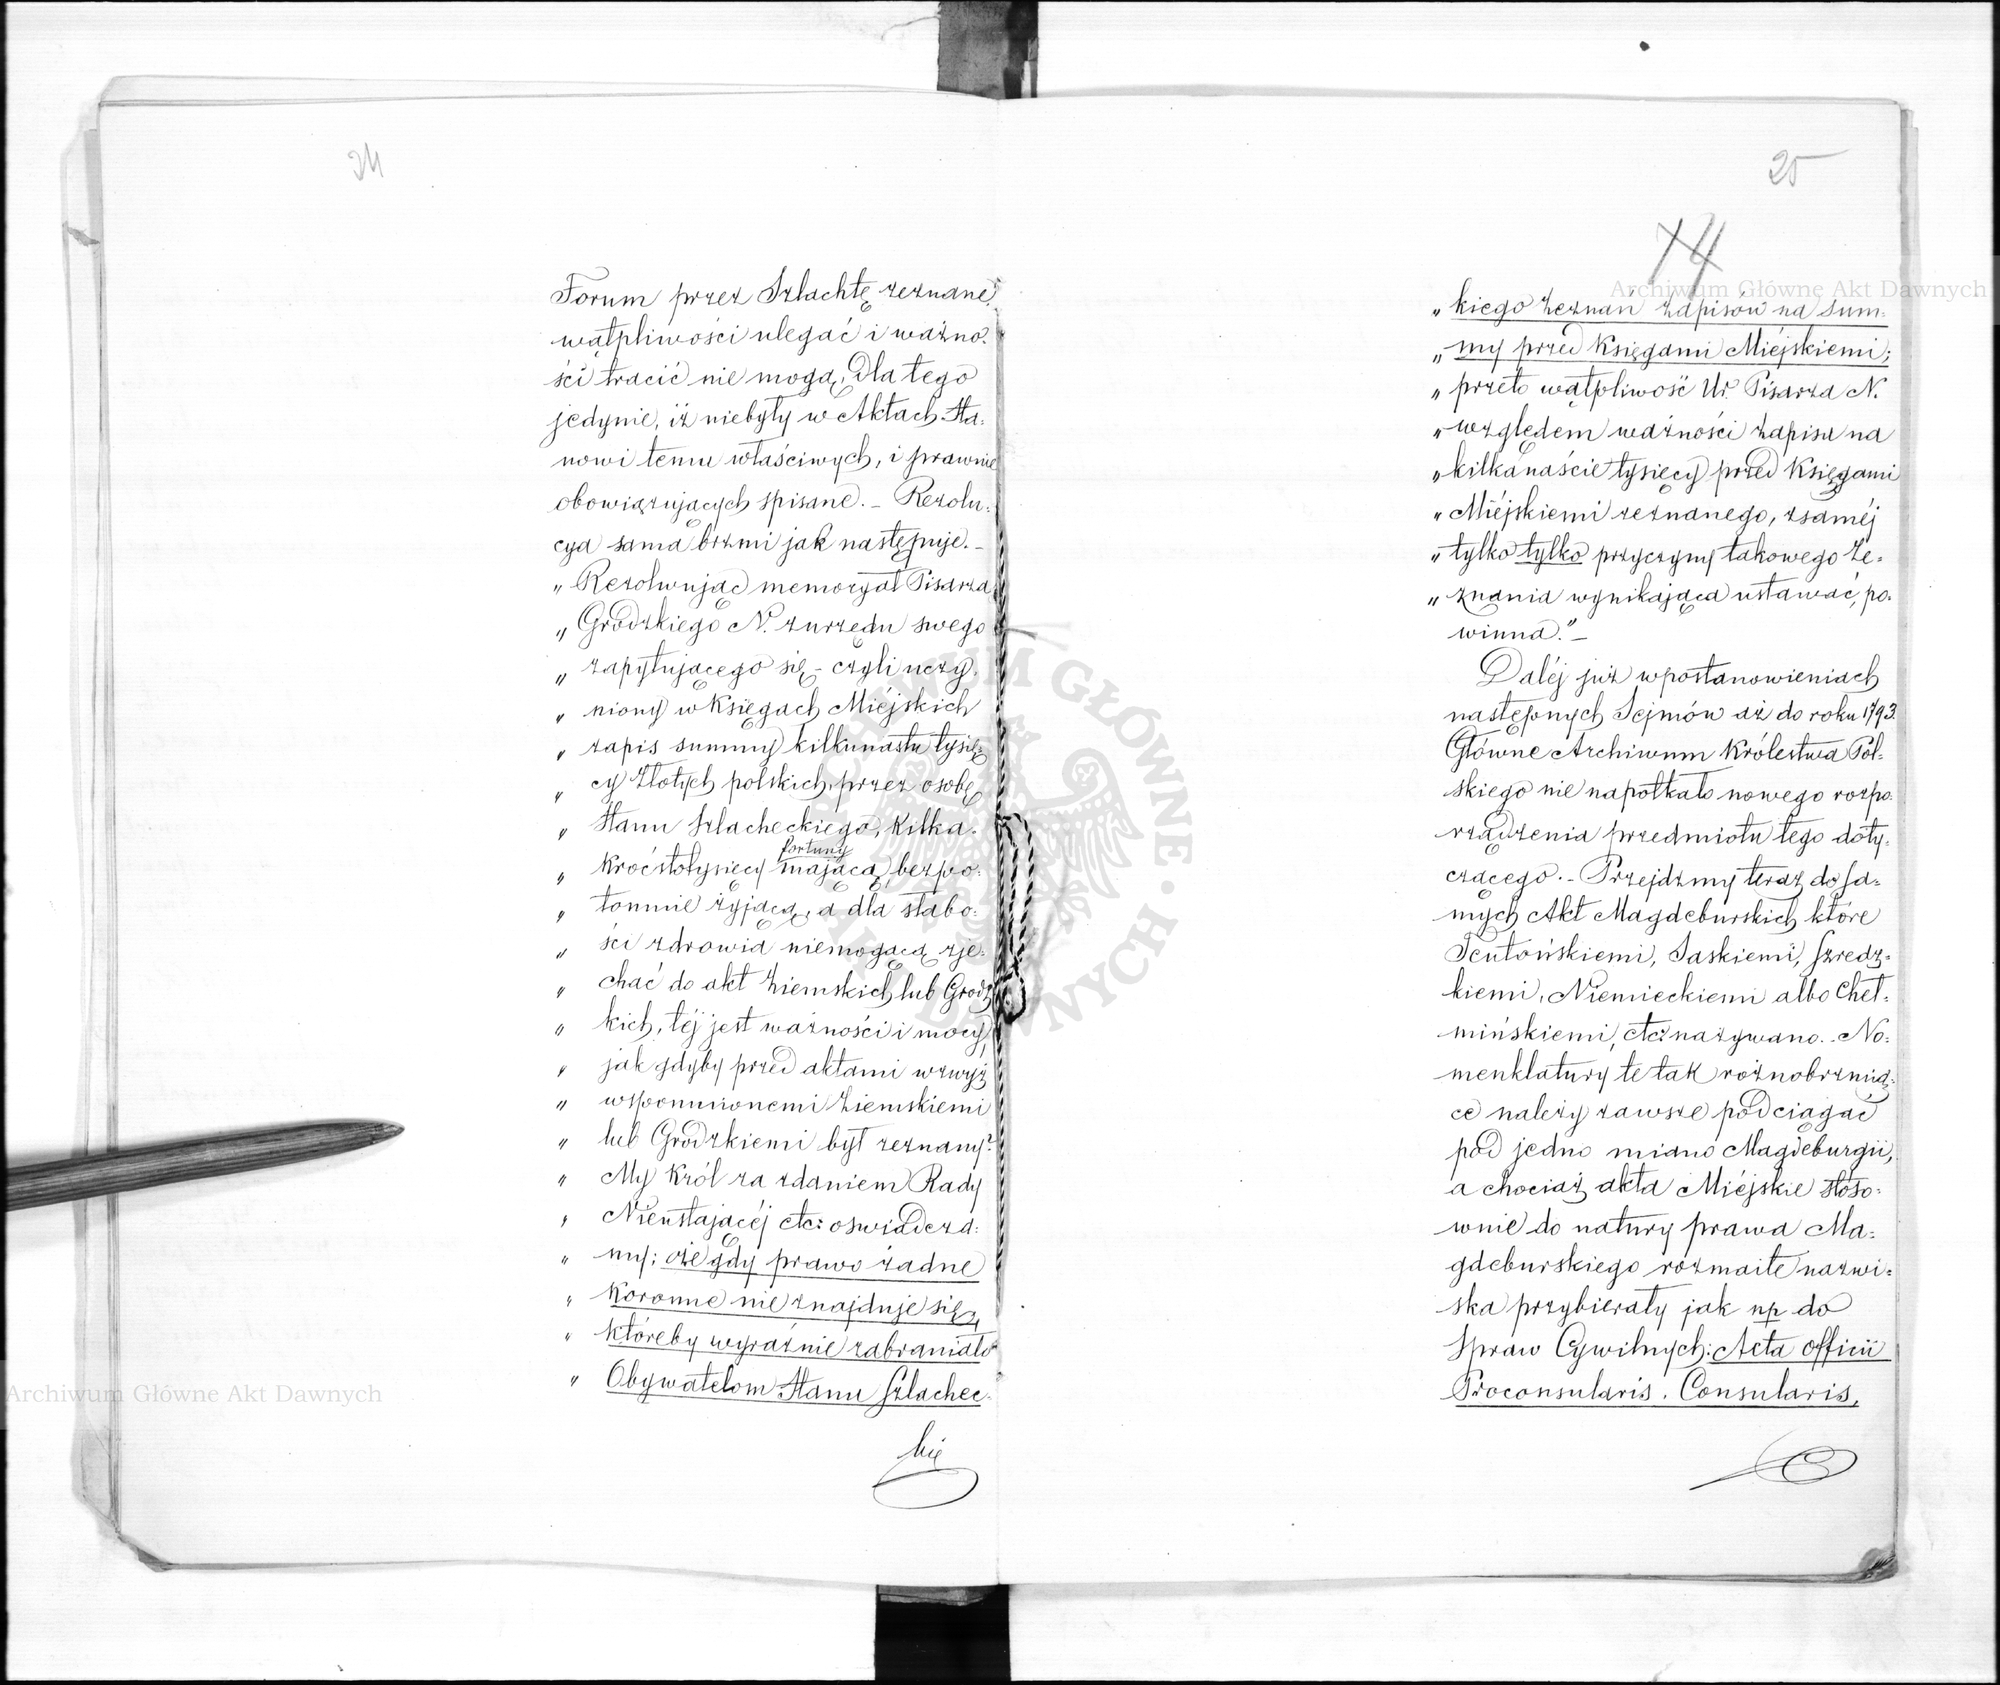 24
Forum przez Szlachtę zeznane,
wątpliwości ulegać i ważno-
ści tracić nie mogą, Dla tego
jedynie, iż niebyły w Aktach Sta-
nowi temu właściwych, i prawnie
obowiązujących spisane. – Rezolu-
cya sama brzmi jak następuje. –
„ Rezolwując memoryał Pisarza
„ Grodzkiego N. z urzędu swego
„ zapytującego się – czyli uczy-
„ niony w Księgach Miéjskich
„ zapis summy kilkunastu tysię-
„ cy Złotych polskich, przez osobę
„ Stanu Szlacheckiego, kilka-
fortuny
„ kroć stotysięcy mającą, bezpo-
„ tomnie żyjącą, a dla słabo-
„ ści zdrowia niemogącą zje-
„ chać do akt Ziemskich lub Grodz-
„ kich, téj jest ważności i mocy,
„ jak gdyby przed aktami wzwyż
„ wspomnionemi Ziemskiemi
„ lub Grodzkiemi był zeznany?
„ My Król za zdaniem Rady
„ Nieustającéj etc: oswiadcza-
„ my; oże gdy prawo żadne
„ Koronne nie znajduje się,
„ któreby wyraźnie zabraniało
„ Obywatelom Stanu Szlachec-
kie
25
14
„ kiego Zeznań zapisów na Sum-
„ my przed Księgami Miéjskiemi;
„ przeto wątpliwość Ur. Pisarza N.
„ względem ważności zapisu na
„ kilkanaście tysięcy przed Księgami
„ Miéjskiemi zeznanego, z saméj
„ tylko tylko przyczyny takowego Ze-
„ znania wynikająca ustawać, po-
winna." –
Daléj już w postanowieniach
następnych Sejmów aż do roku 1793.
Główne Archiwum Królestwa Pol-
skiego nie napotkało nowego rozpo-
rządzenia przedmiotu tego doty-
czącego. – Przejdźmy teraz do Sa-
mych Akt Magdeburskich które
Teutońskiemi, Saskiemi, Szredz-
kiemi, Niemieckiemi albo Cheł-
mińskiemi, etc: nazywano. – No-
menklatury te tak róźnobrzmią-
ce należy zawsze podciągać
pod jedno miano Magdeburgii,
a chociaż akta Miéjskie stoso-
wnie do natury prawa Ma-
gdeburskiego rozmaite nazwi-
ska przybierały jak np do
Spraw Cywilnych: Acta officii
Proconsularis. Consularis,
Archiwum Główne Akt Dawnych
Archiwum Główne Akt Dawnych
ARCHIWUM GŁÓWNE AKT DAWNYCH